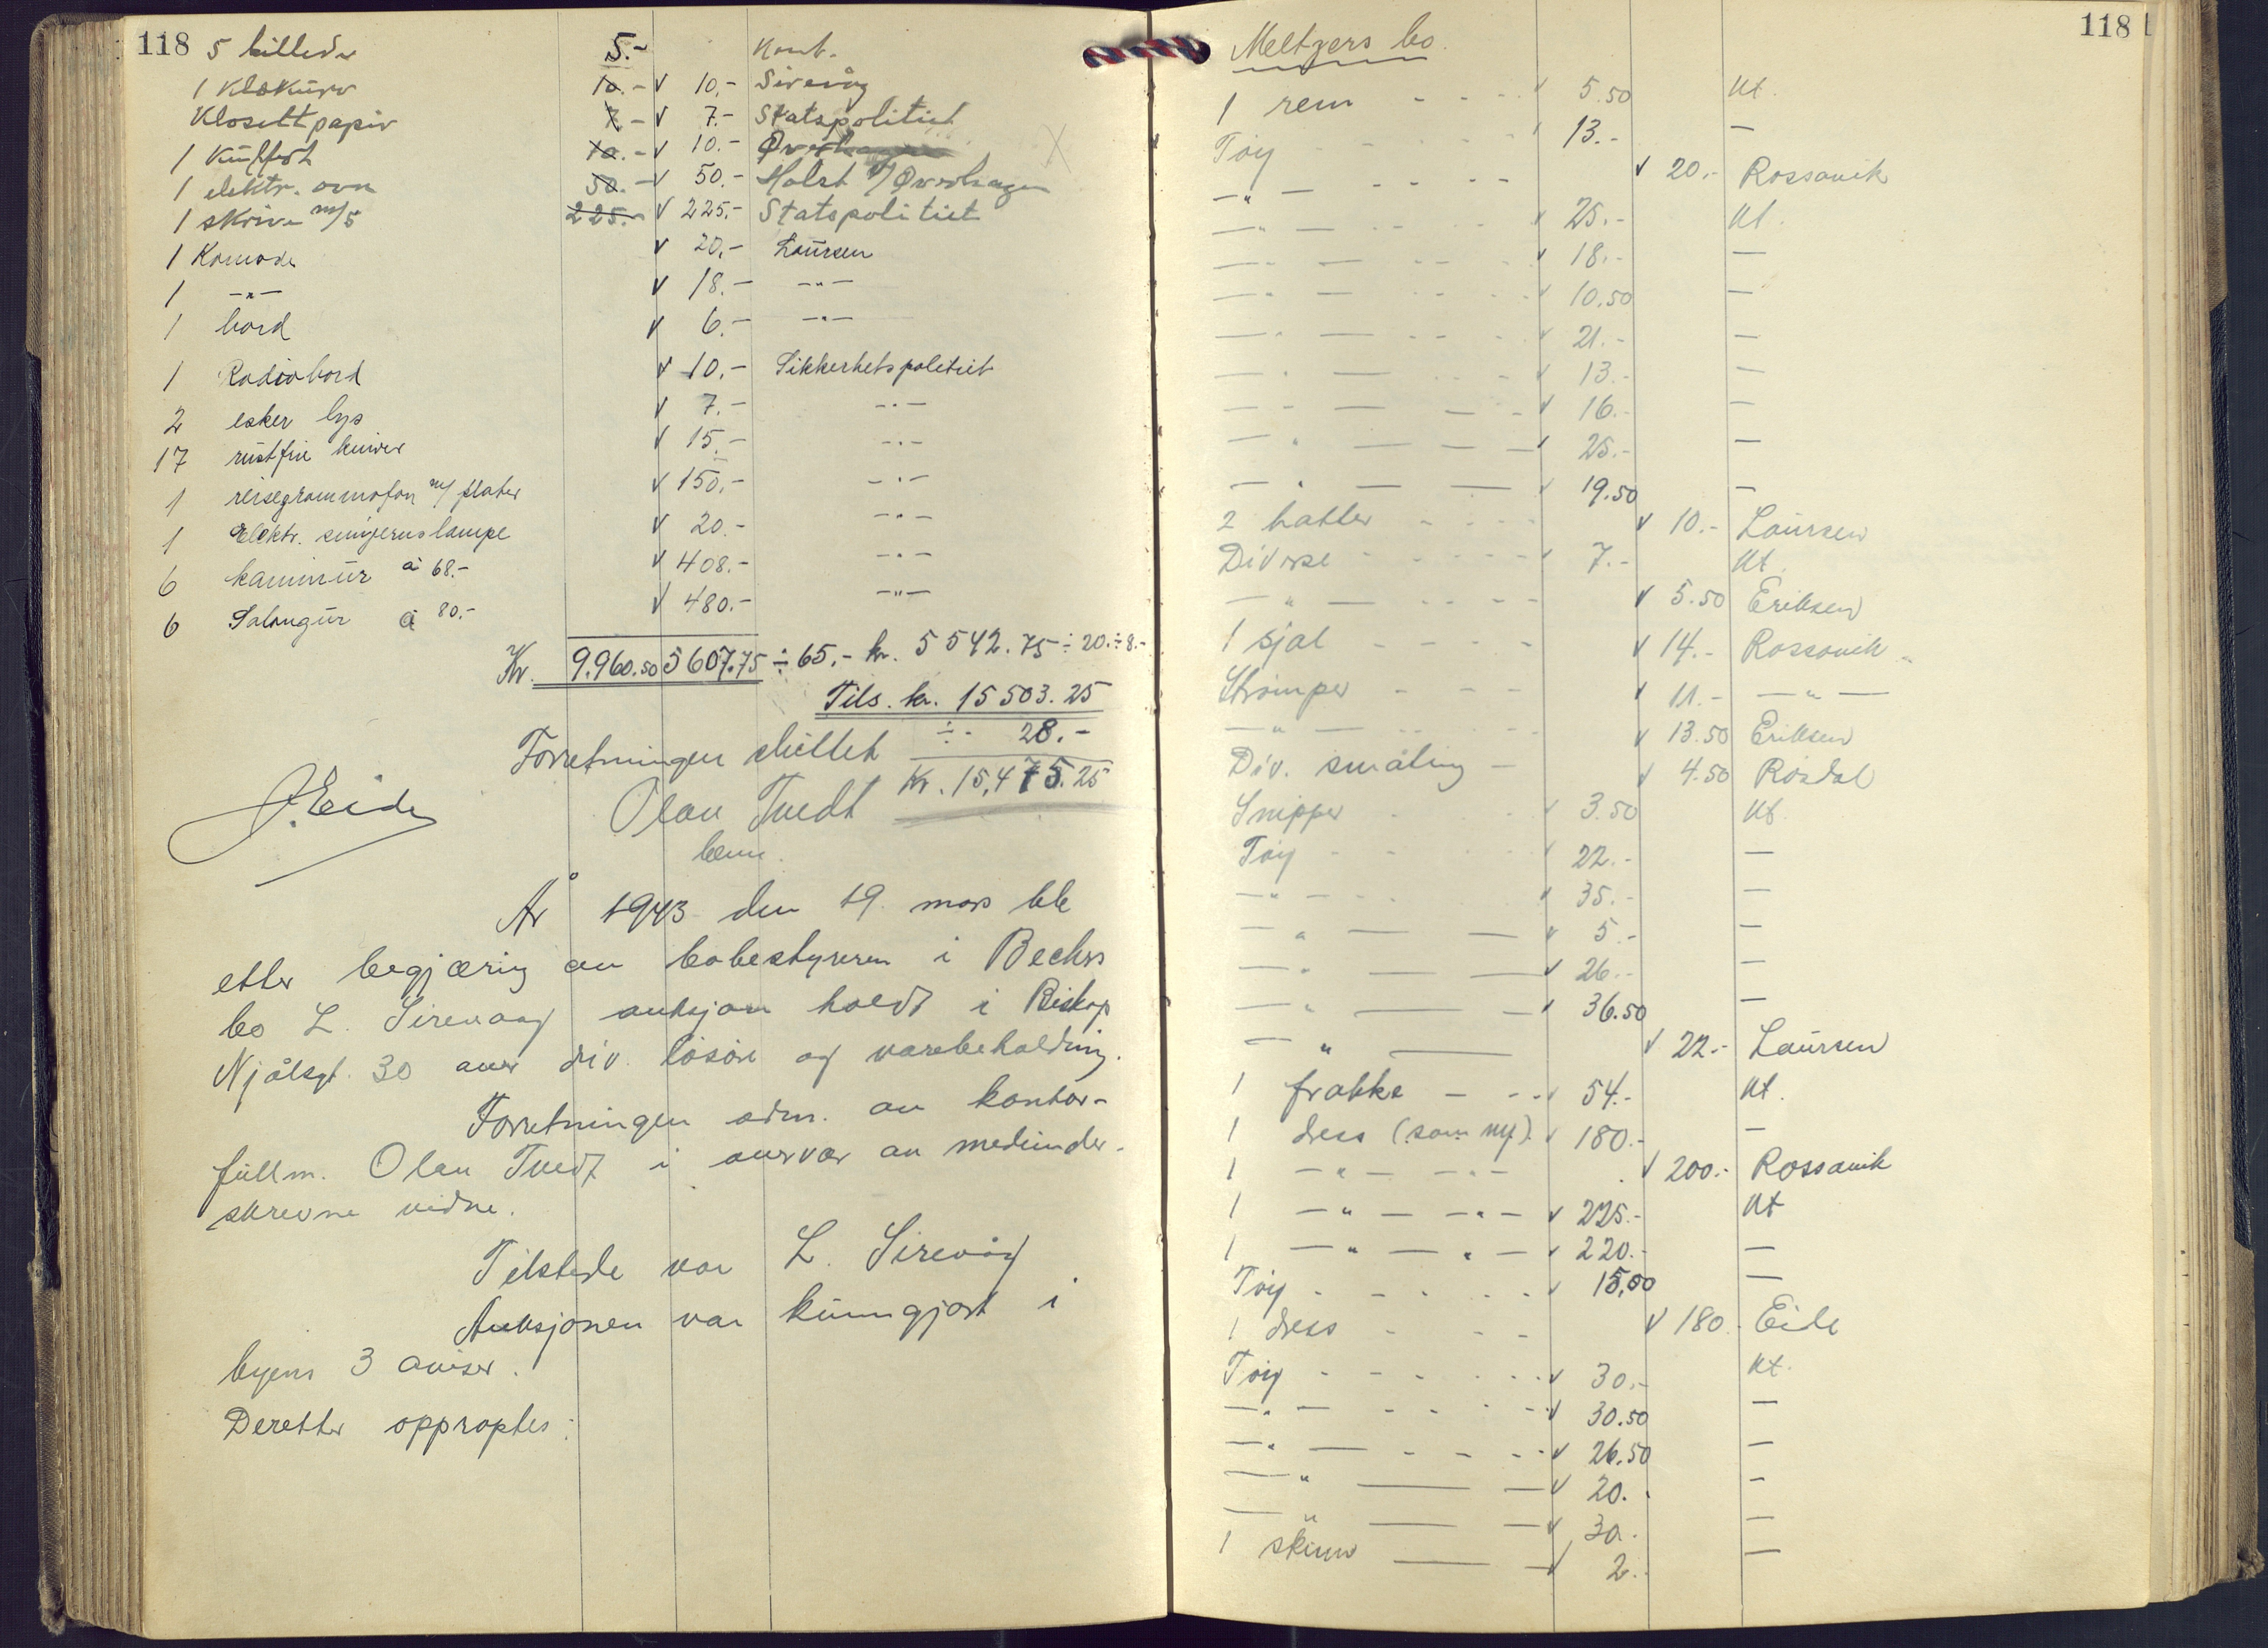 118
5 billeder 5.- Kont.
1 Klokurv 10.- v 10.- Sirevåg
Klosettpapir 7.- v 7.- Statspolitiet
1 10.- v 10.-
1 elektr. ovn 50.- v 50.- Holst v/ Øverhagen
1 skriv m/5 225.- v 225.- Statspolitiet
1 Komode v 20.- Laursen
1 -"- v 18.- -"-
1 bord v 6.- -"-
1 Radiobord v 10.- Sikkerhetspolitiet
2 esker lys v 7.- -"-
17 rustfrie kniver v 15.- -"-
1 reisegrammofon m/ plater v 150.- -"-
1 Elektr. lampe v 20.- -"-
6 kaminur à 68.- v 408.- -"-
6 Salongur à 80.- v 480.- -"-
Kr. 9.960.50 5607.75 ÷ 65.- kr. 5542.75 ÷ 20.÷8.-
Tils. kr. 15503.25
÷ 28.-
Forretningen sluttet
Kr. 15,475.25
Olav Tvedt
bem.
J. Eide
År 1943 den 19. mars ble
etter begjæring av bobestyreren i Beckers
bo L. Sirevaag auksjon holdt i Biskop
Njålsgt. 30 over div. løsøre og varebeholdning.
Forretningen adm. av kontor-
fullm. Olav Tvedt i overvær av medunder-
skrevne vidne.
Tilstede var L. Sirevåg
Auksjonen var kunngjort i
byens 3 aviser.
Deretter opproptes:
118
Meltzers bo.
1 rem v 5.50 Kt.
Tøy v 13.- —
-"- v 20.- Rossavik
-"- v 25.- Kt.
-"- v 18.- —
-"- v 10.50 —
-"- v 21.- —
-"- v 13.- —
-"- v 16.- —
-"- v 25.- —
-"- v 19.50 —
2 hatter v 10.- Laursen
Diverse v 7.- Kt.
-"- v 5.50 Eriksen
1 sjal v 14.- Rossavik
Strømper v 11.- -"-
-"- v 13.50 Eriksen
Div. småting v 4.50 Rosdal
Snipper v 3.50 Kt.
Tøy v 22.- —
-"- v 35.- —
-"- v 5.- —
-"- v 26.- —
-"- v 36.50 —
-"- v 22.- Laursen
1 frakke v 54.- Kt.
1 dress (som ny) v 180.- —
1 -"- -"- v 200.- Rossavik
1 -"- -"- v 225.- Kt
1 -"- -"- v 220.- —
Tøy v 15,00 —
1 dress v 180.- Eide
Tøy v 30.- Kt.
-"- v 30.50 —
-"- v 26.50 —
-"- v 20. —
-"- v 30. —
1 skinn v 2. —